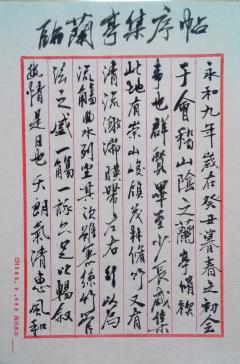 临蘭亭集序帖
永和九年歲在癸丑暮春之初會
于會稽山陰之蘭亭脩禊
事也群賢畢至少長咸集
此地有崇山峻領茂林脩竹又有
清流激湍暎帶左右引以為
流觴曲水列坐其次雖無絲竹管
弦之盛一觴一詠亦足以暢叙
幽情是日也天朗氣清惠風和